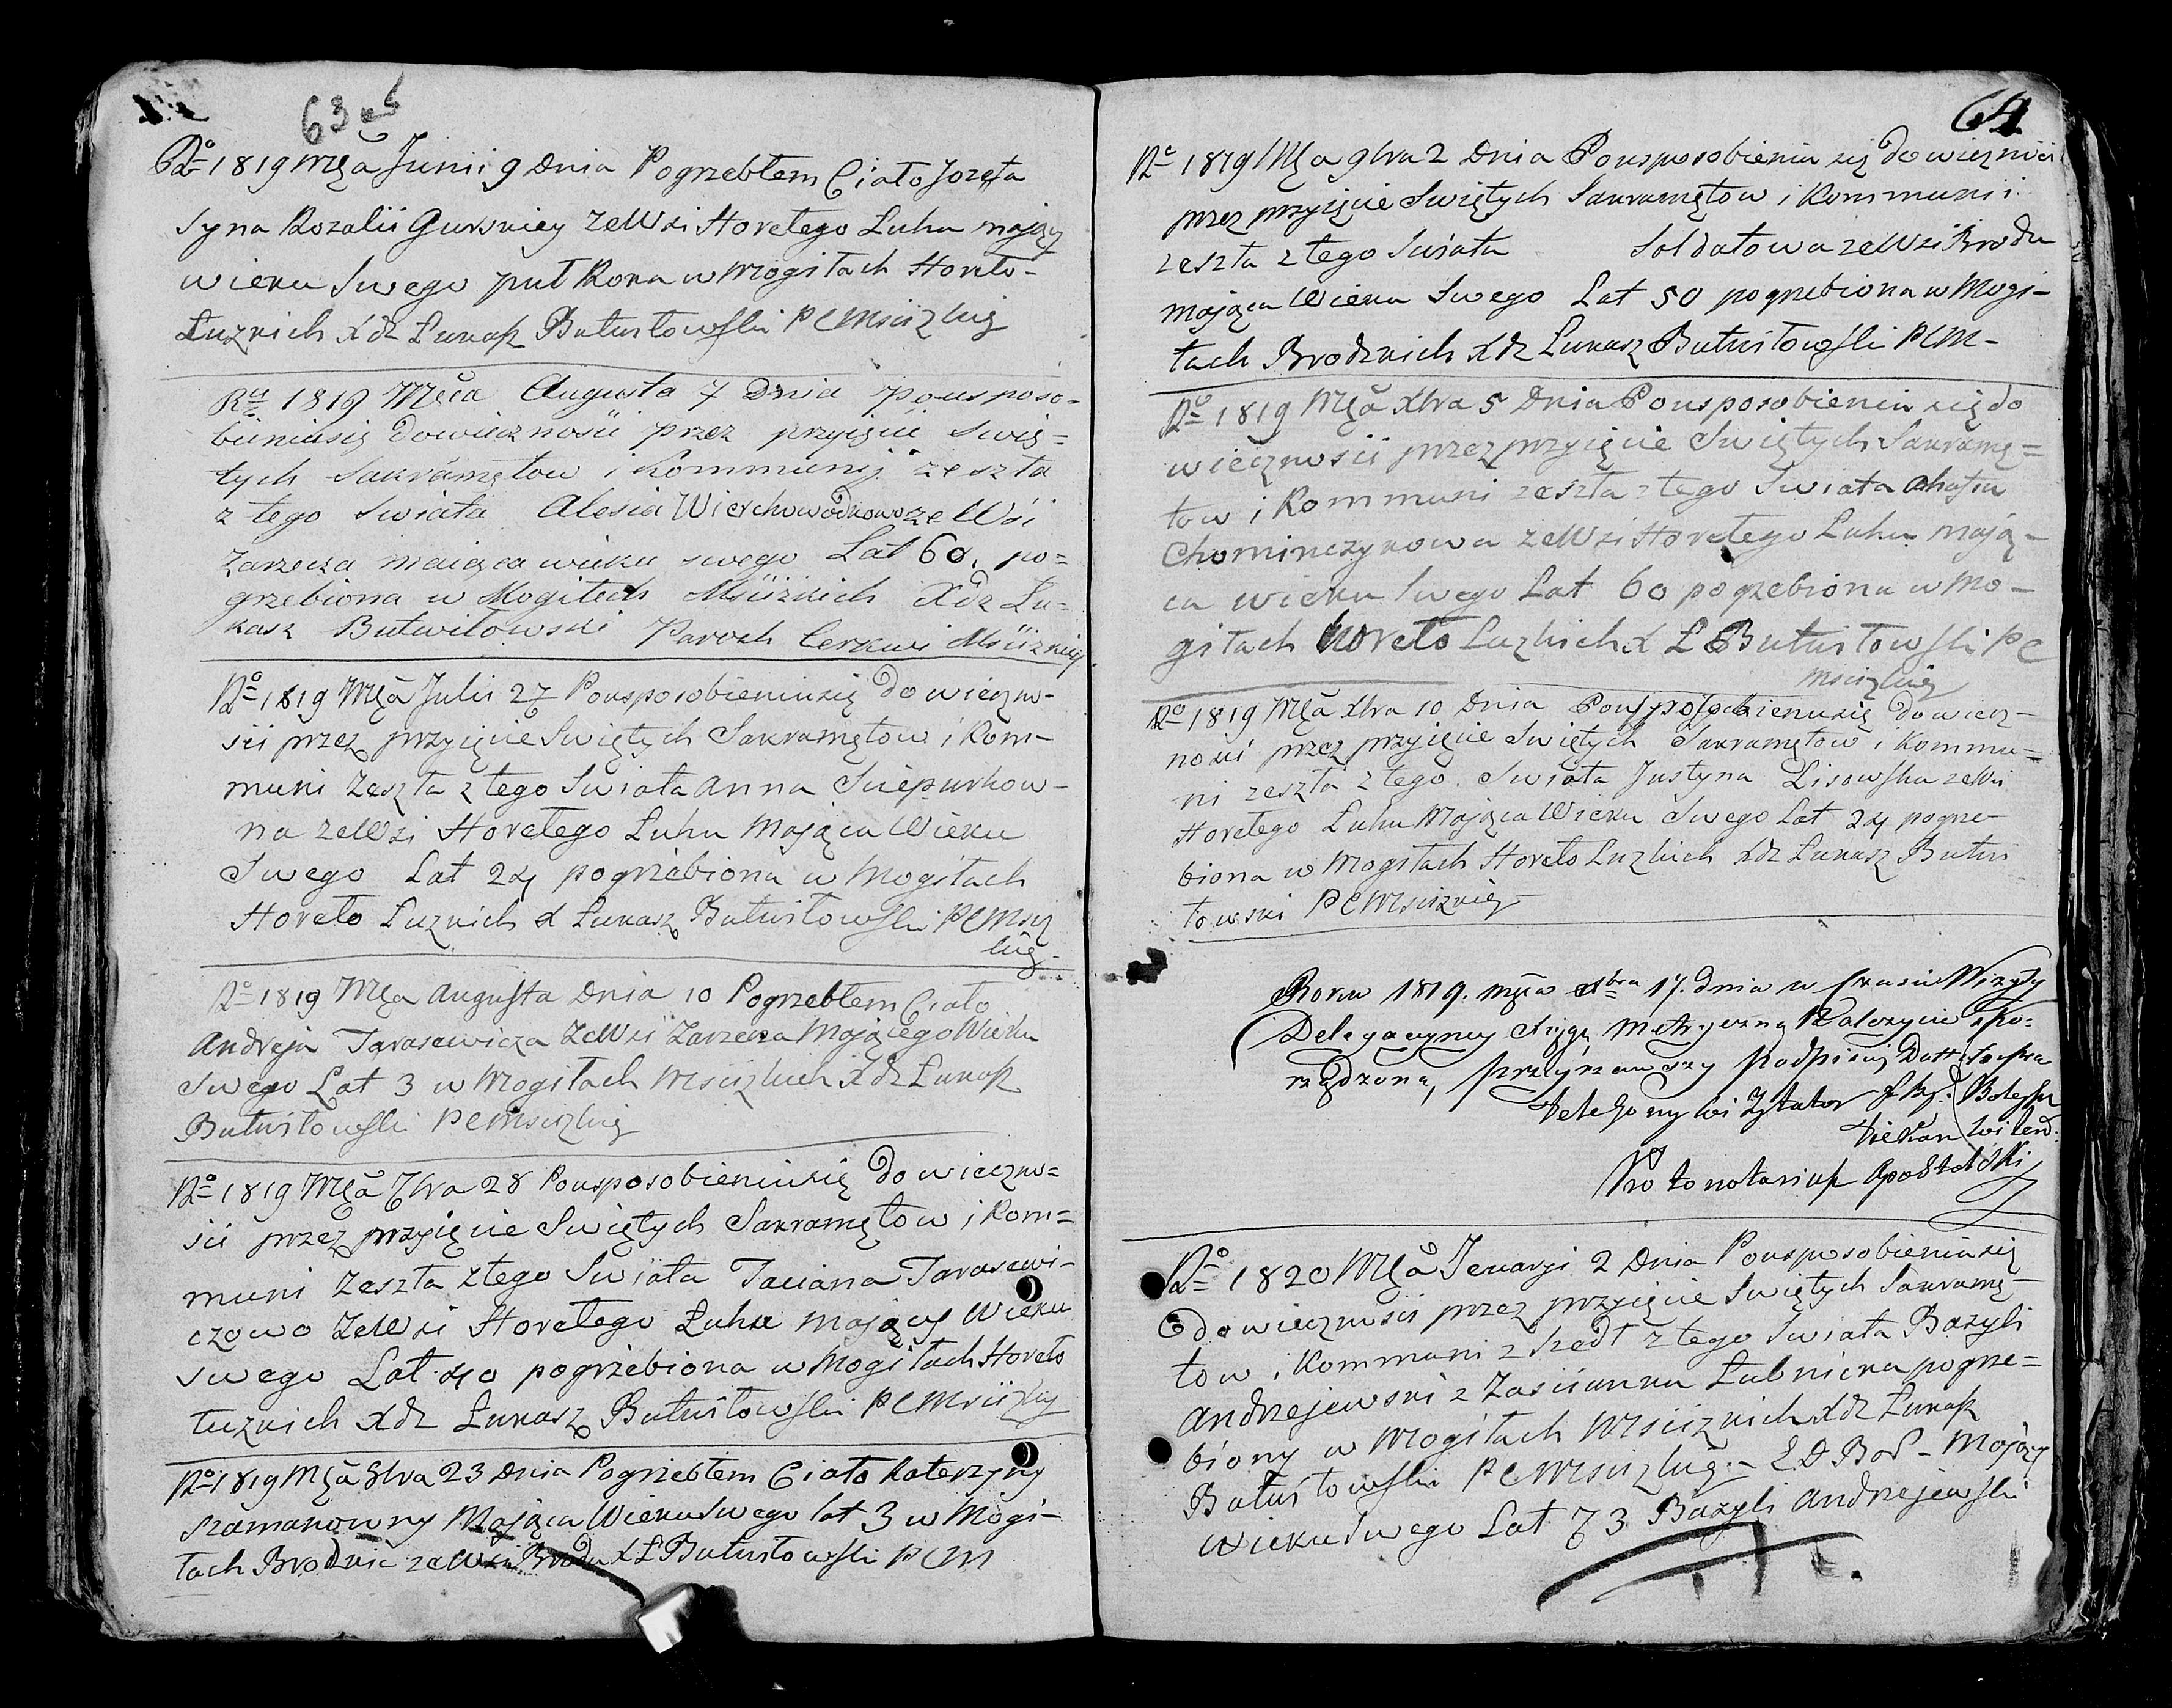 63 об
Ro 1819 Mca Junii 9 Dnia Pogrzebłem Ciało Jozefa
Syna Rozalii Gurskiey zeWsi Horełego Luhu mający
wieku Swego puł Roku w Mogiłach Horeło-
Łuzkich Xdz Łukasz Butwiłowski PCMscizkiej
Ru 1819 Mca Augusta 7 Dnia Pousposo-
bieniusię dowieczności przez przyięcie Swię=
tych Sakramętow i Kommunij zeszła
z tego Swiata Alesia Wierchowodkowa ze Wsi
Zarzecza maiąca wieku swego Lat 60. po=
grzebiona w Mogiłach Mściżkich Xdz Łu=
kasz Butwiłowski Paroch Cerkwi Mściżkiej
Ro 1819 Mca Julii 27 Pousposobieniusię do wieczno-
sci przez przyięcie Swiętych Sakramętow i Kom-
muni Zeszła z tego Swiata Anna Sciepurkow-
na zeWsi Horełego Luhu Mająca Wieku
Swego Lat 24 pogrzebiona w Mogiłach
Horeło Luzkich X Łukasz Butwiłowski PCMsciz
kiej
Ro 1819 Mca Augusta Dnia 10 Pogrzebłem Ciało
Andreja Tarasewicza ZeWsi Zarzecza Mającego Wieku
Swego Lat 3 w Mogiłach Mscizkich Xdz Łukasz
Butwiłowski PCMscizkiej
Ro 1819 Mca 7bra 28 Pousposobieniusię do wieczno=
sci przez przyięcie Swiętych Sakramętow i Kom=
muni Zeszła z tego Swiata Taciana Tarasewi-
czowa ZeWsi Horełego Łuhu mający Wieku
swego Lat 40 pogrzebiona w Mogiłach Horeło
łuzkich Xdz Łukasz Butwiłowski PCMscizkiej
Ro 1819 Mca 8bra 23 Dnia Pogrzebłem Ciało Katerzyny
Szamanowny Mająca Wieku Swego lat 3 w Mogi-
łach Brodzkic zeWsi Brodu XŁ Butwiłowski PCM
64
Ro 1819 Mca 9bra 2 Dnia Pousposobieniu się do wieczności
przez przyięcie Swiętych Sakramętow i Kommunii
zeszła z tego Swiata Soldatowa zeWsi Brodu
mająca Wieku Swego Lat 50 pogrzebiona w Mogi-
łach Brodzkich Xdz Łukasz Butwiłowski PCM-
Ro 1819 Mca Xbra 5 Dnia Pousposobieniu się do
wieczności przez przyięcie Swiętych Sakramę=
tow i Kommuni zeszła z tego Swiata
Chominczykowa zeWsi Horełego Luhu mają-
ca wieku Swego Lat 60 pogrzebiona w Mo-
giłach Horeło Luzkich X Ł Butwiłowski PC
Mscizkiej
Ro 1819 Mca Xbra 10 Dnia Pousposobieniusię do wiecz-
nosci przez przyięcie Swiętych Sakramętow i Kommu-
ni zeszła z tego Swiata Justyna Lisowska zeWsi
Horełego Luhu Mająca Wieku Swego Lat 24 pogrze-
biona w Mogiłach Horeło Luzkich Xdz Łukasz Butwi
łowski PCMscizkiej
Roku 1819. mca Xbra 17. dnia w czasie Wizyty
Delegacyiney Xięgę Metryczną Należycie spo=
rządzoną, przeyrzawszy podpisuię Datt ut supra
Delegowny Wizytator
Dziekan Wilend.
Protonotariusz Apostolski
Ro 1820 Mca Jenuaryi 2 Dnia Pousposobieniusię
do wieczności przez przyięcie Swiętych Sakramę-
tow i Kommuni zszedł z tego Swiata Bazyli
Andrzejewski z Zascianku Łubnicka pogrze=
biony w Mogiłach Mscizkich Xdz Łukasz
Butwiłowski PCMscizkiej - Mający
wieku Swego Lat 73 Bazyli Andrzejewski